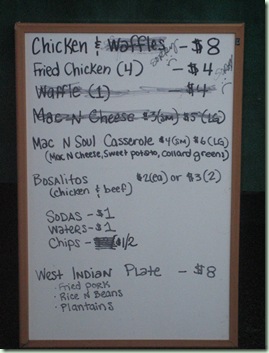 Chicken & Waffles - $8
sorry
Fried Chicken (4) - $4
Waffle (1) - $4
sorry
Mac N Cheese $3(SM) $5(LG)
Mac N Soul Casserole $4(SM) $6(LG)
(Mac N Cheese, Sweet potato, collard greens)
Bosalitos $2(ea) or $3(2)
(chicken & beef)
SODAS - $1
WATERS - $1
Chips - $1/2
West Indian Plate - $8
· Fried pork
· Rice N Beans
· Plantains